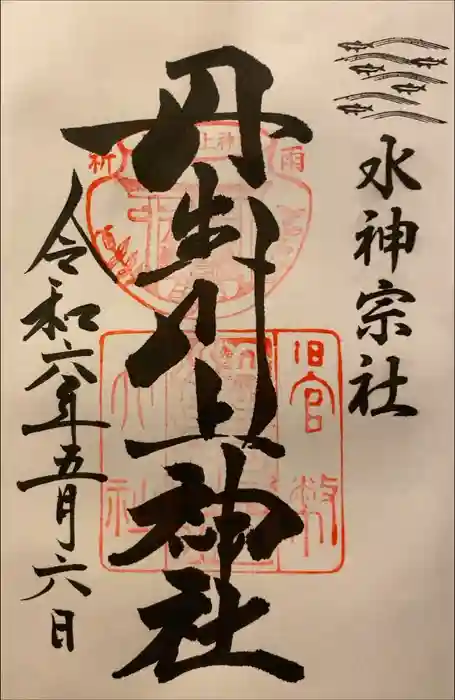 水神宗社
丹生川上神社
令和六年五月六日
雨
祈
旧官幣
大社